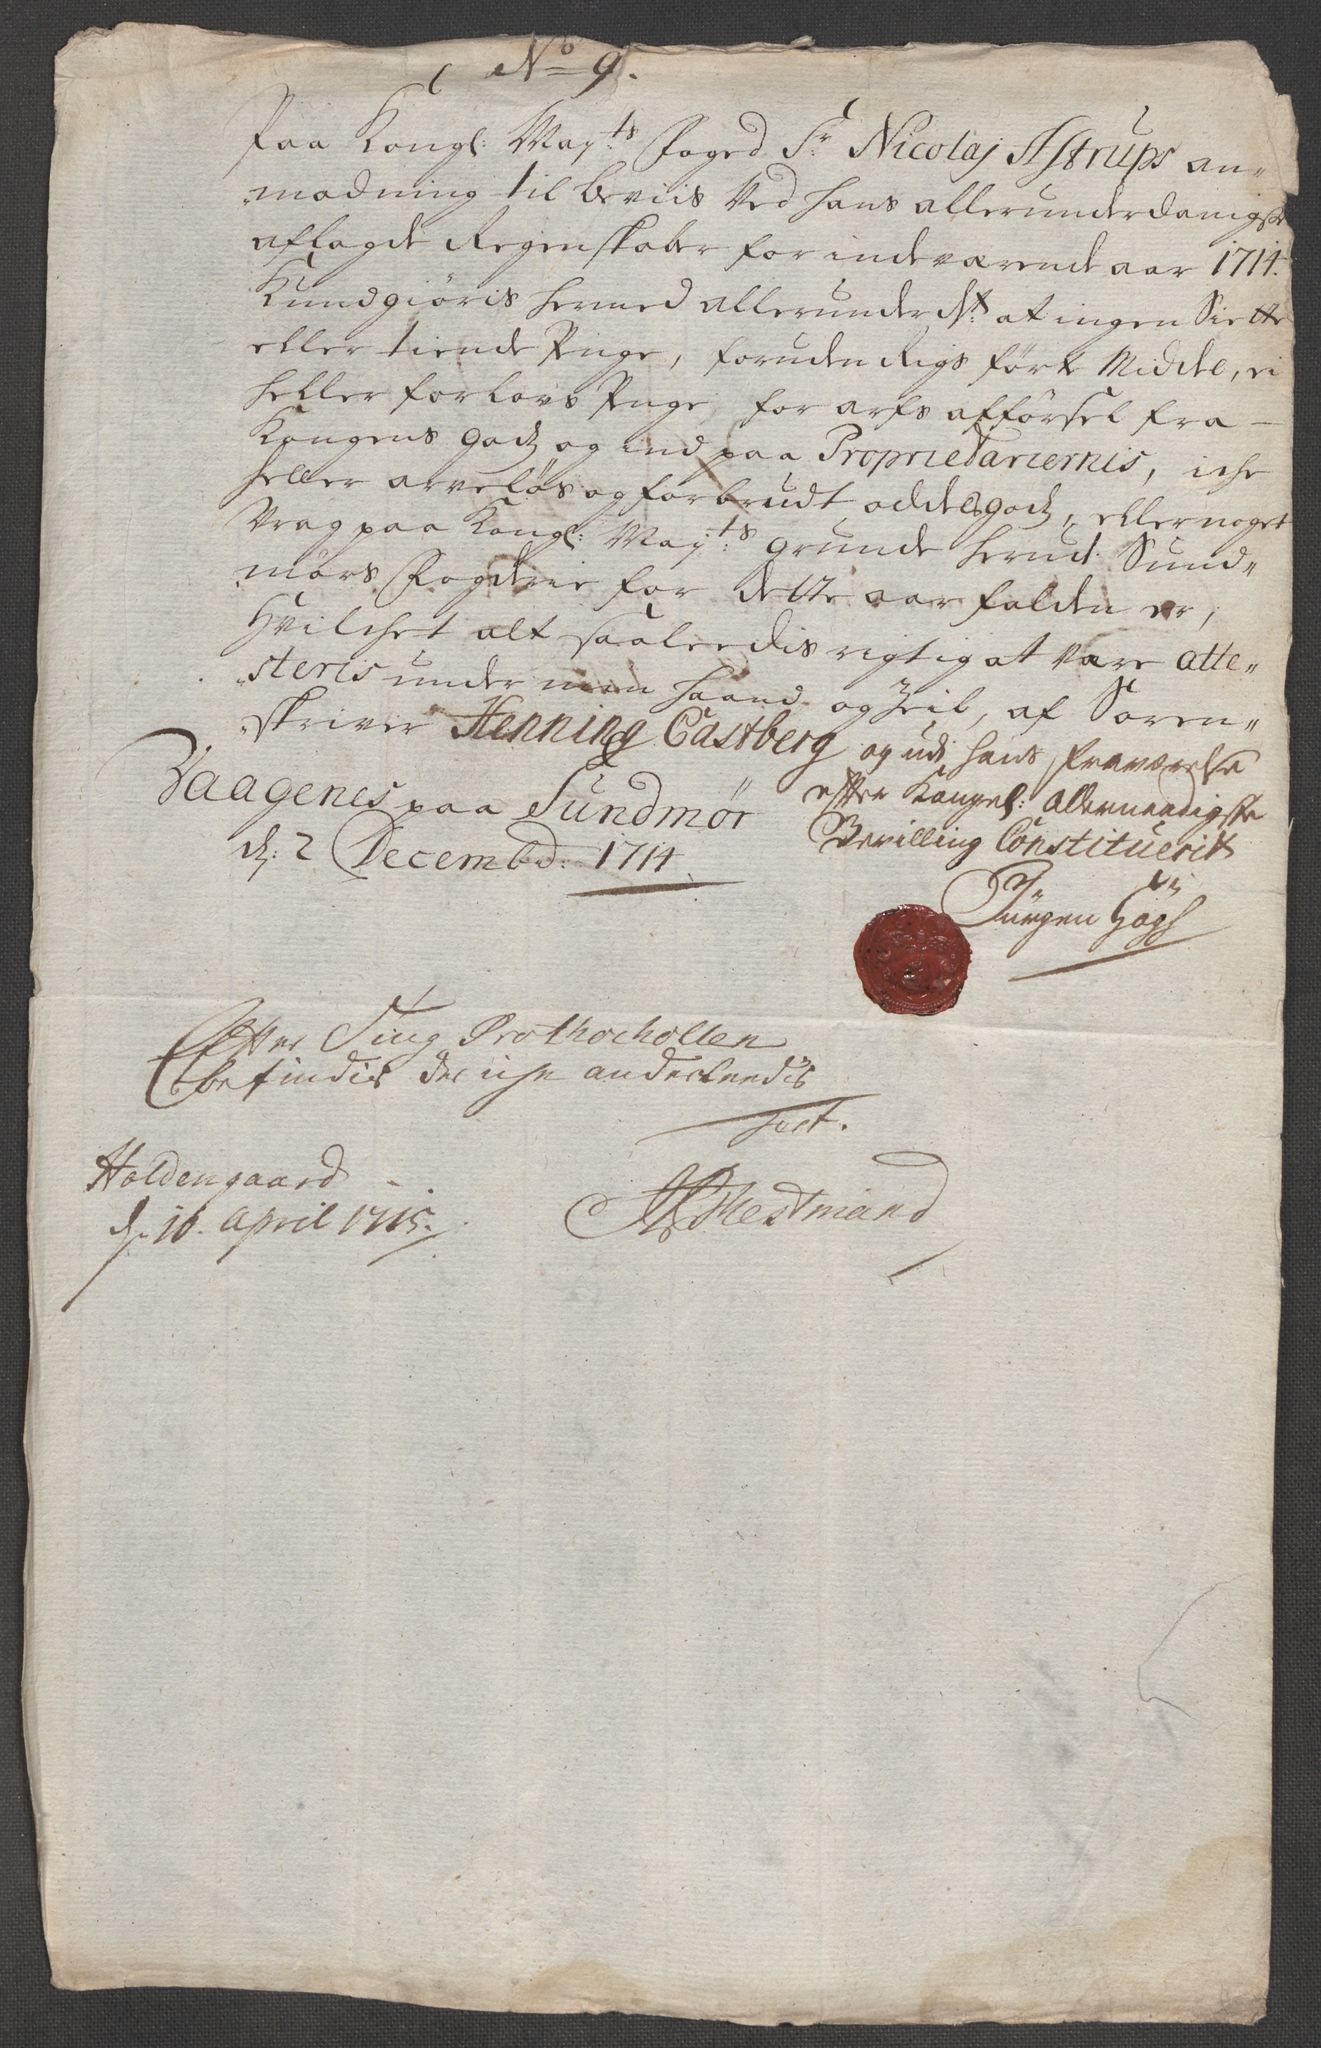 No 9.
Paa Kongl: May:ts Foged Sr Nicolaj Astrups an-
modning til beviis Ved hans allerunderdanigste
aflagde Regenskaber for indeværende aar 1714.
Kundgiöris hermed allerunderdst: at ingen Siette
eller tiende Penge, foruden Rigs förte Middel, ei
heller forlovs Penge, for arfs afförsel fra -
Kongens godz og ind paa Proprietariernis, iche
heller arvelös og forbrudt oddelsgodz, eller noget
Vrag paa Kongl: May:ts grunde herud: Sund-
mörs Fogderie for dette aar falden er,
Hvilchet alt saaleedis rigtig at være atte-
steris under min haand og Zeil, af Soren-
skriver Henning Castberg og udi hans fraværelse
effter Kongel: allernaadigste
Bevilling Constituerit
Vaagenes paa Sundmör
d: 2 Decembr: 1714
Jürgen
Effter Ting Prothochollen
befindis der iche anderleedis
Holdengaard
d. 16. April 1715.
Hestmand